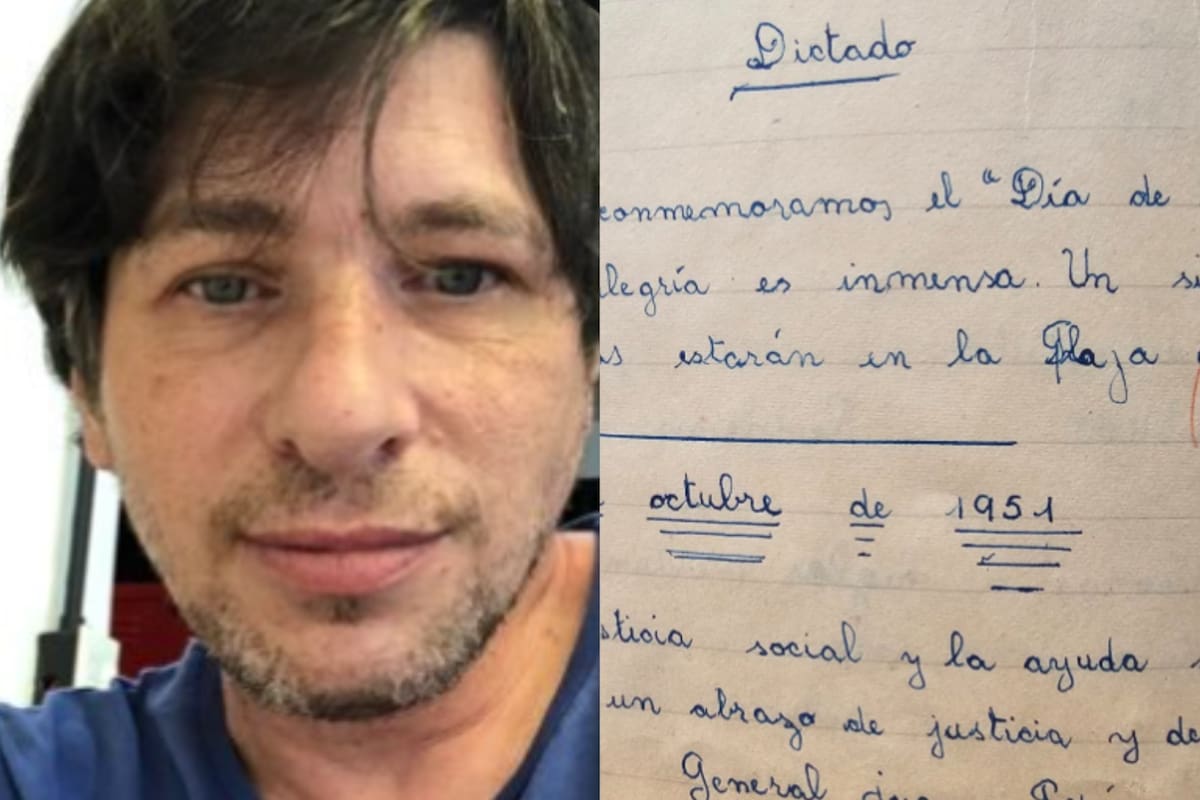 Dictado
conmemoramos el "Día de
legría es inmensa. Un si
s estarán en la Plaza
octubre de 1951
sticia social y la ayuda
un abrazo de justicia y de
General